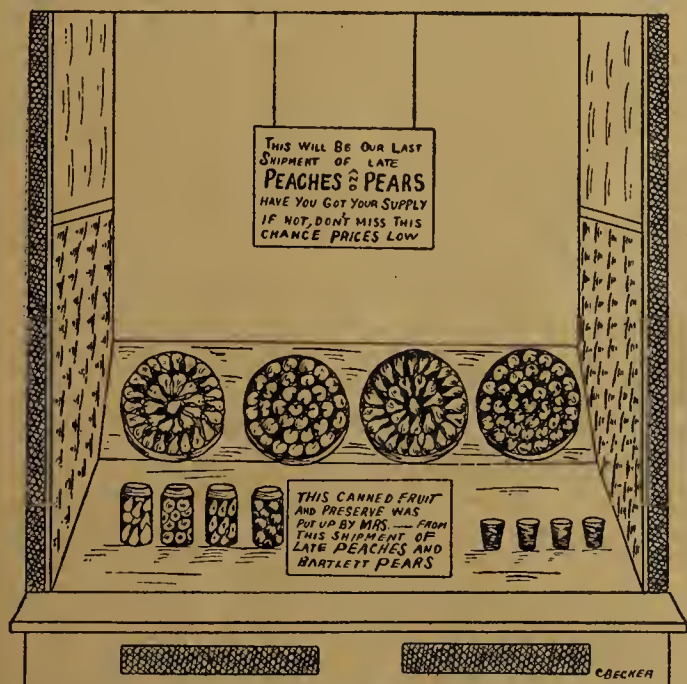 THIS WILL BE OUR LAST
SHIPMENT OF LATE
PEACHES AND PEARS
HAVE YOU GOT YOUR SUPPLY
IF NOT, DON'T MISS THIS
CHANCE PRICES LOW
THIS CANNED FRUIT
AND PRESERVE WAS
PUT UP BY MRS. — FROM
THIS SHIPMENT OF
LATE PEACHES AND
BARTLETT PEARS
C BECKER